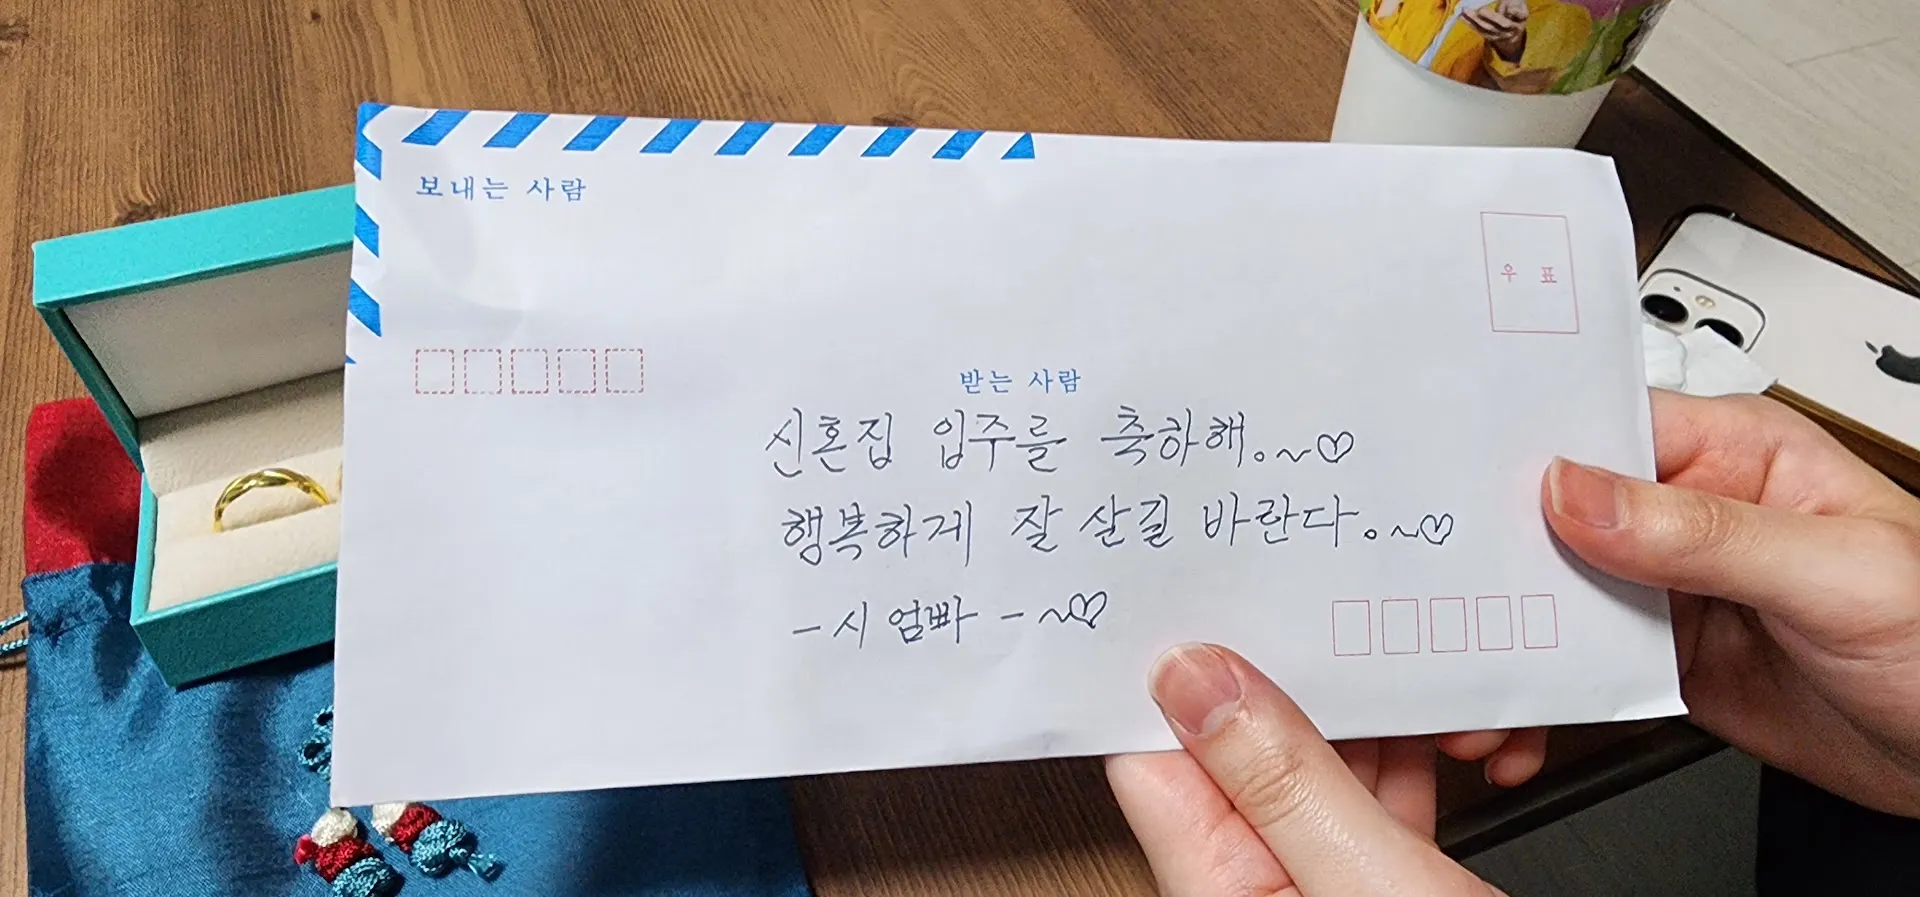 보내는 사람
우 표
받는 사람
신혼집 입주를 축하해.~♡
행복하게 잘 살길 바란다.~♡
- 시 엄빠 - ~♡